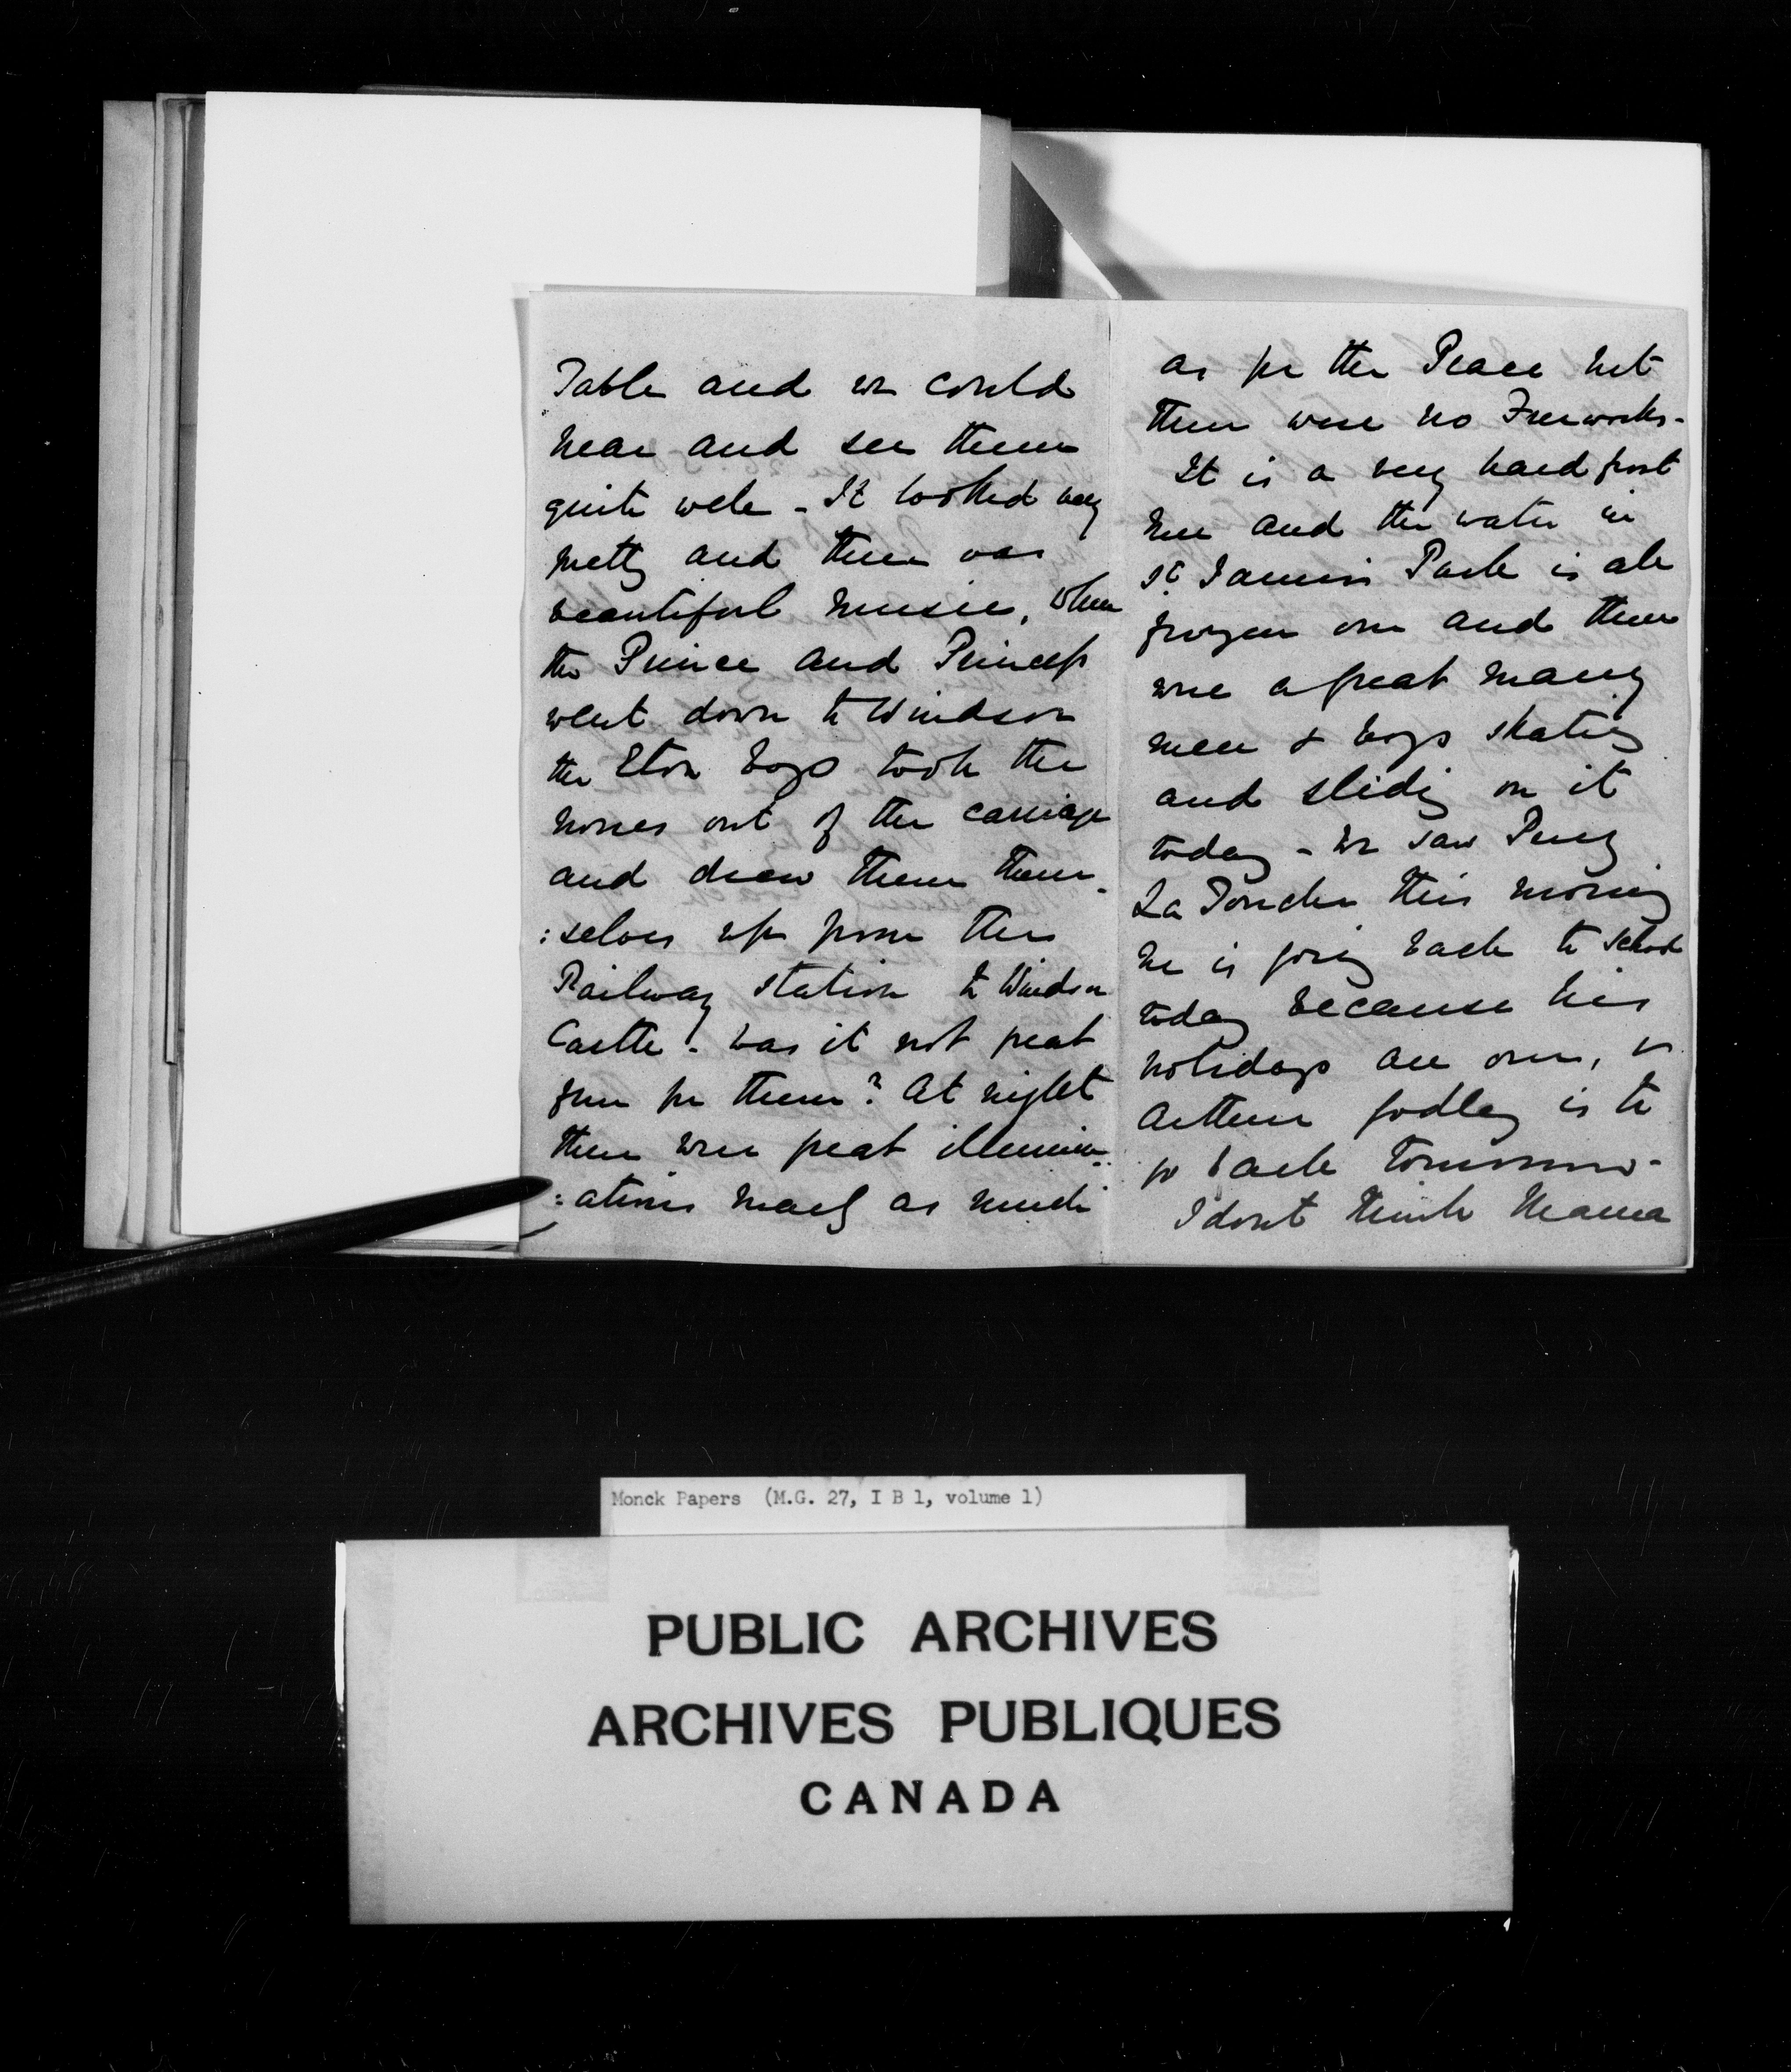 Table and we could
hear and see them
quite well - It looked very
pretty and there was
beautiful music, When
the Prince and Princess
went down to Windsor
the Eton boys took the
horses out of the carriage
and drew them them-
:selves up from the
Railway station to Windsor
Castle - was it not great
fun for them? At night
there were great illumin-
:ations nearly as much
as for the Peace but
there were no Fireworks-
It is a very hard frost
here and the water in
St. James's Park is all
frozen over and there
were a great many
men & boys skating
and sliding on it
today - we saw Percy
La Touche this morning
he is going back to school
today because his
holidays are over, &
Arthur Godley is to
go back tomorrow-
I dont think Mama
Monck Papers (M.G. 27, I B 1, volume 1)
PUBLIC ARCHIVES
ARCHIVES PUBLIQUES
CANADA